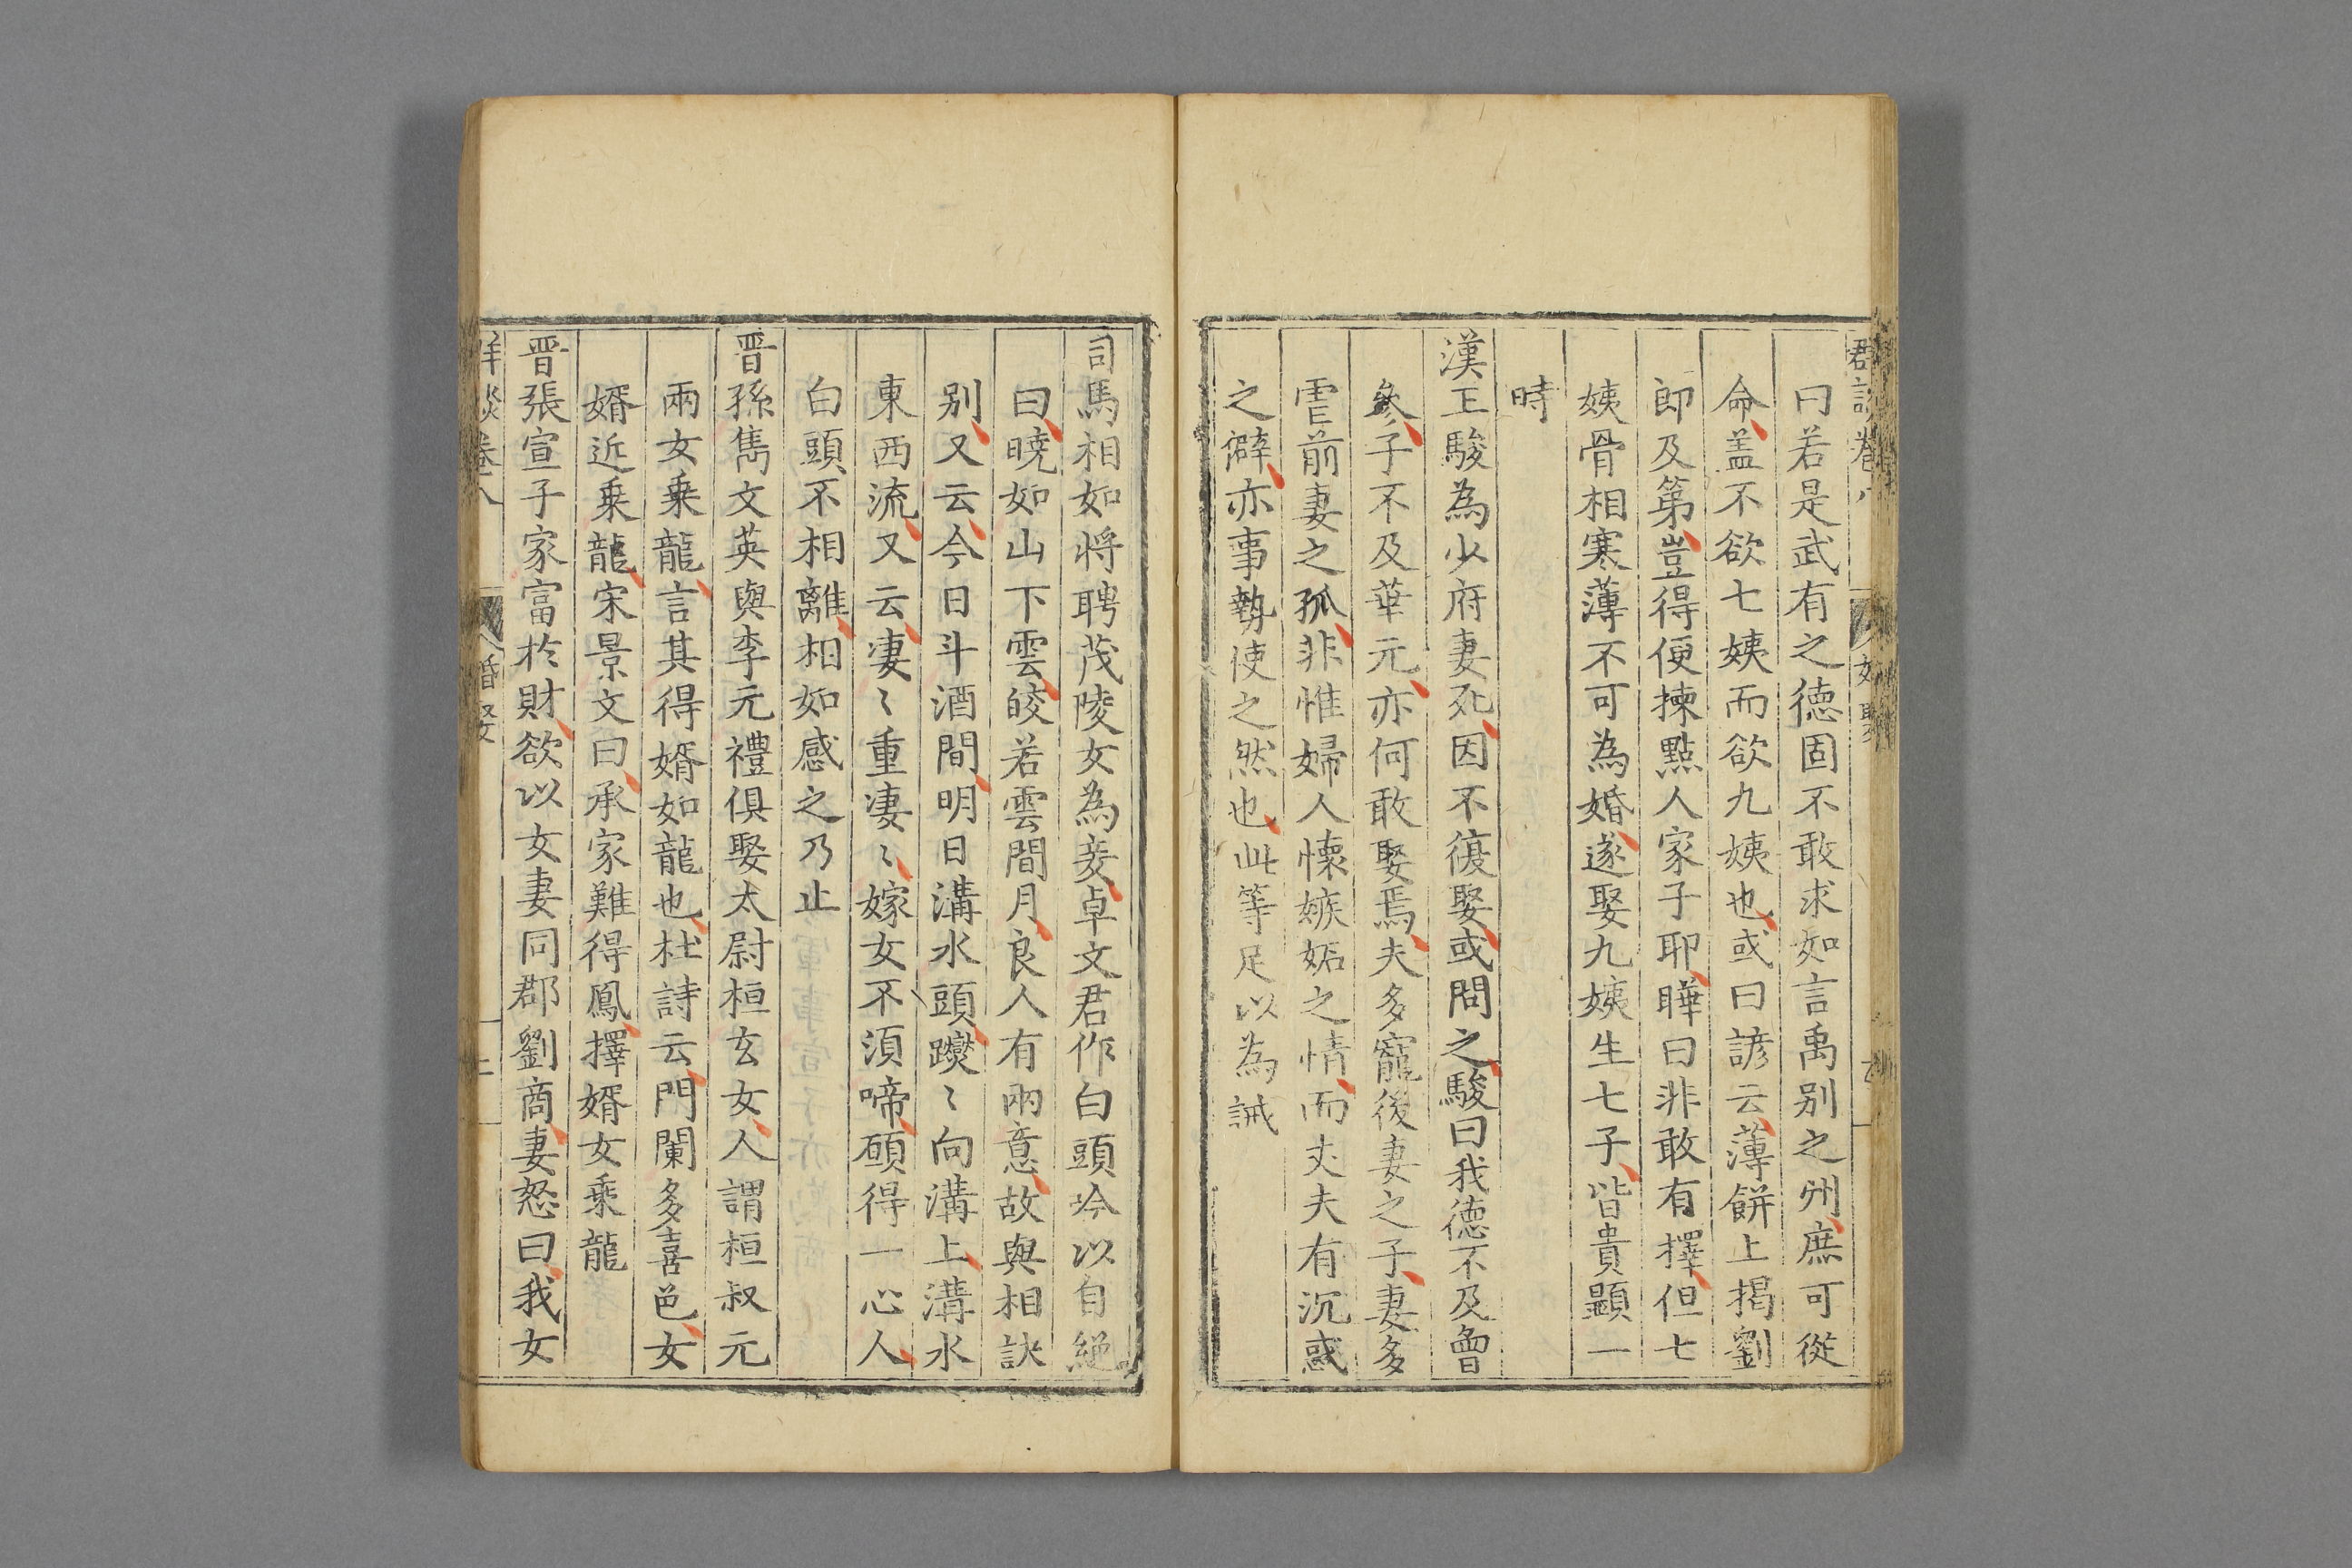 曰若是武有之德固不敢求如言禹别之州庶可從
命盖不欲七姨而欲九姨也或曰諺云薄餅上揭劉
郎及第豈得便揀點人家子耶曄曰非敢有擇但七
姨骨相寒薄不可為婚遂娶九姨生七子皆貴顯一
時
漢王駿為少府妻死因不復娶或問之駿曰我德不及曾
參子不及華元亦何敢娶焉夫多寵後妻之子妻多
虐前妻之孤非惟婦人懷嫉妬之情而丈夫有沉惑
之僻亦事勢使之然也此等足以為誡
司馬相如將聘茂陵女為妾卓文君作白頭吟以自絕
曰曉如山下雲皎若雲間月良人有兩意故與相訣
别又云今日斗酒間明日溝水頭躞〻向溝上溝水
東西流又云凄〻重凄〻嫁女不須啼願得一心人
白頭不相離相如感之乃止
晋孫雋文英與李元禮俱娶太尉桓玄女人謂桓叔元
兩女乗龍言其得婿如龍也杜詩云門闌多喜邑女
婿近乗龍宋景文曰承家難得鳳擇婿女乘龍
晋張宣子家富於財欲以女妻同郡劉商妻怒曰我女